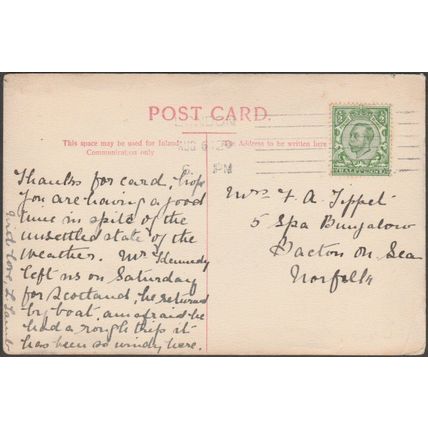 POST CARD.
This space may be used for Inland Communication only
The Address to be written here
LONDON
AUG 6 12
PM
HALFPENNY
Thanks for card, hope
you are having a good
time in spite of the
unsettled state of the
weather. Mr Kennedy
left us on Saturday
for Scotland, he returned
by boat, am afraid he
had a rough trip it
has been so windy here.
with love
Mrs F. A. Tippet
5 Spa Bungalow
Bacton On Sea
Norfolk